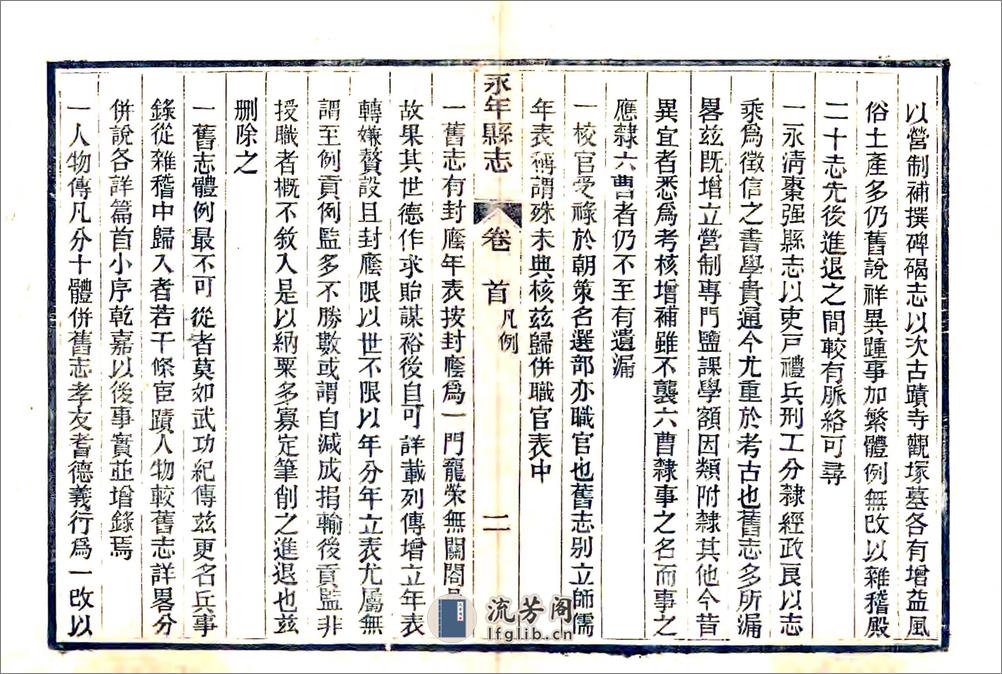 以營制補撰碑碣志以次古蹟寺觀塚墓各有增益風
俗土產多仍舊說祥異踵事加繁體例無改以雜稽殿
二十志先後進退之間較有脈絡可尋
一永淸棗强縣志以吏戸禮兵刑工分隸經政艮以志
乘爲徵信之書學貴通今尤重於考古也舊志多所漏
畧玆既增立營制專門鹽課學額因類附隸其他今昔
異宜者悉爲考核增補雖不襲六曹隸事之名而事之
應隸六曹者仍不至有遺漏
一校官受祿於朝策名選部亦職官也舊志別立師儒
年表稱謂殊未典核玆歸併職官表中
永年縣志
卷首
凡例
二
一舊志有封廕年表按封廕爲一門寵榮無關閤
故果其世德作求貽謀裕後自可詳載列傳增立年表
轉嫌贅設且封廕限以世不限以年分年立表尤屬無
謂至例貢例監多不勝數或謂自減成捐輸後貢監非
授職者概不敘入是以納粟多寡定筆削之進退也玆
删除之
一舊志體例最不可從者莫如武功紀傳玆更名兵事
錄從雜稽中歸入者若干條宦蹟人物較舊志詳畧分
併說各詳篇首小序乾嘉以後事實並增錄焉
一人物傳凡分十體併舊志孝友耆德義行爲一改以
流芳阁
lfglib.cn